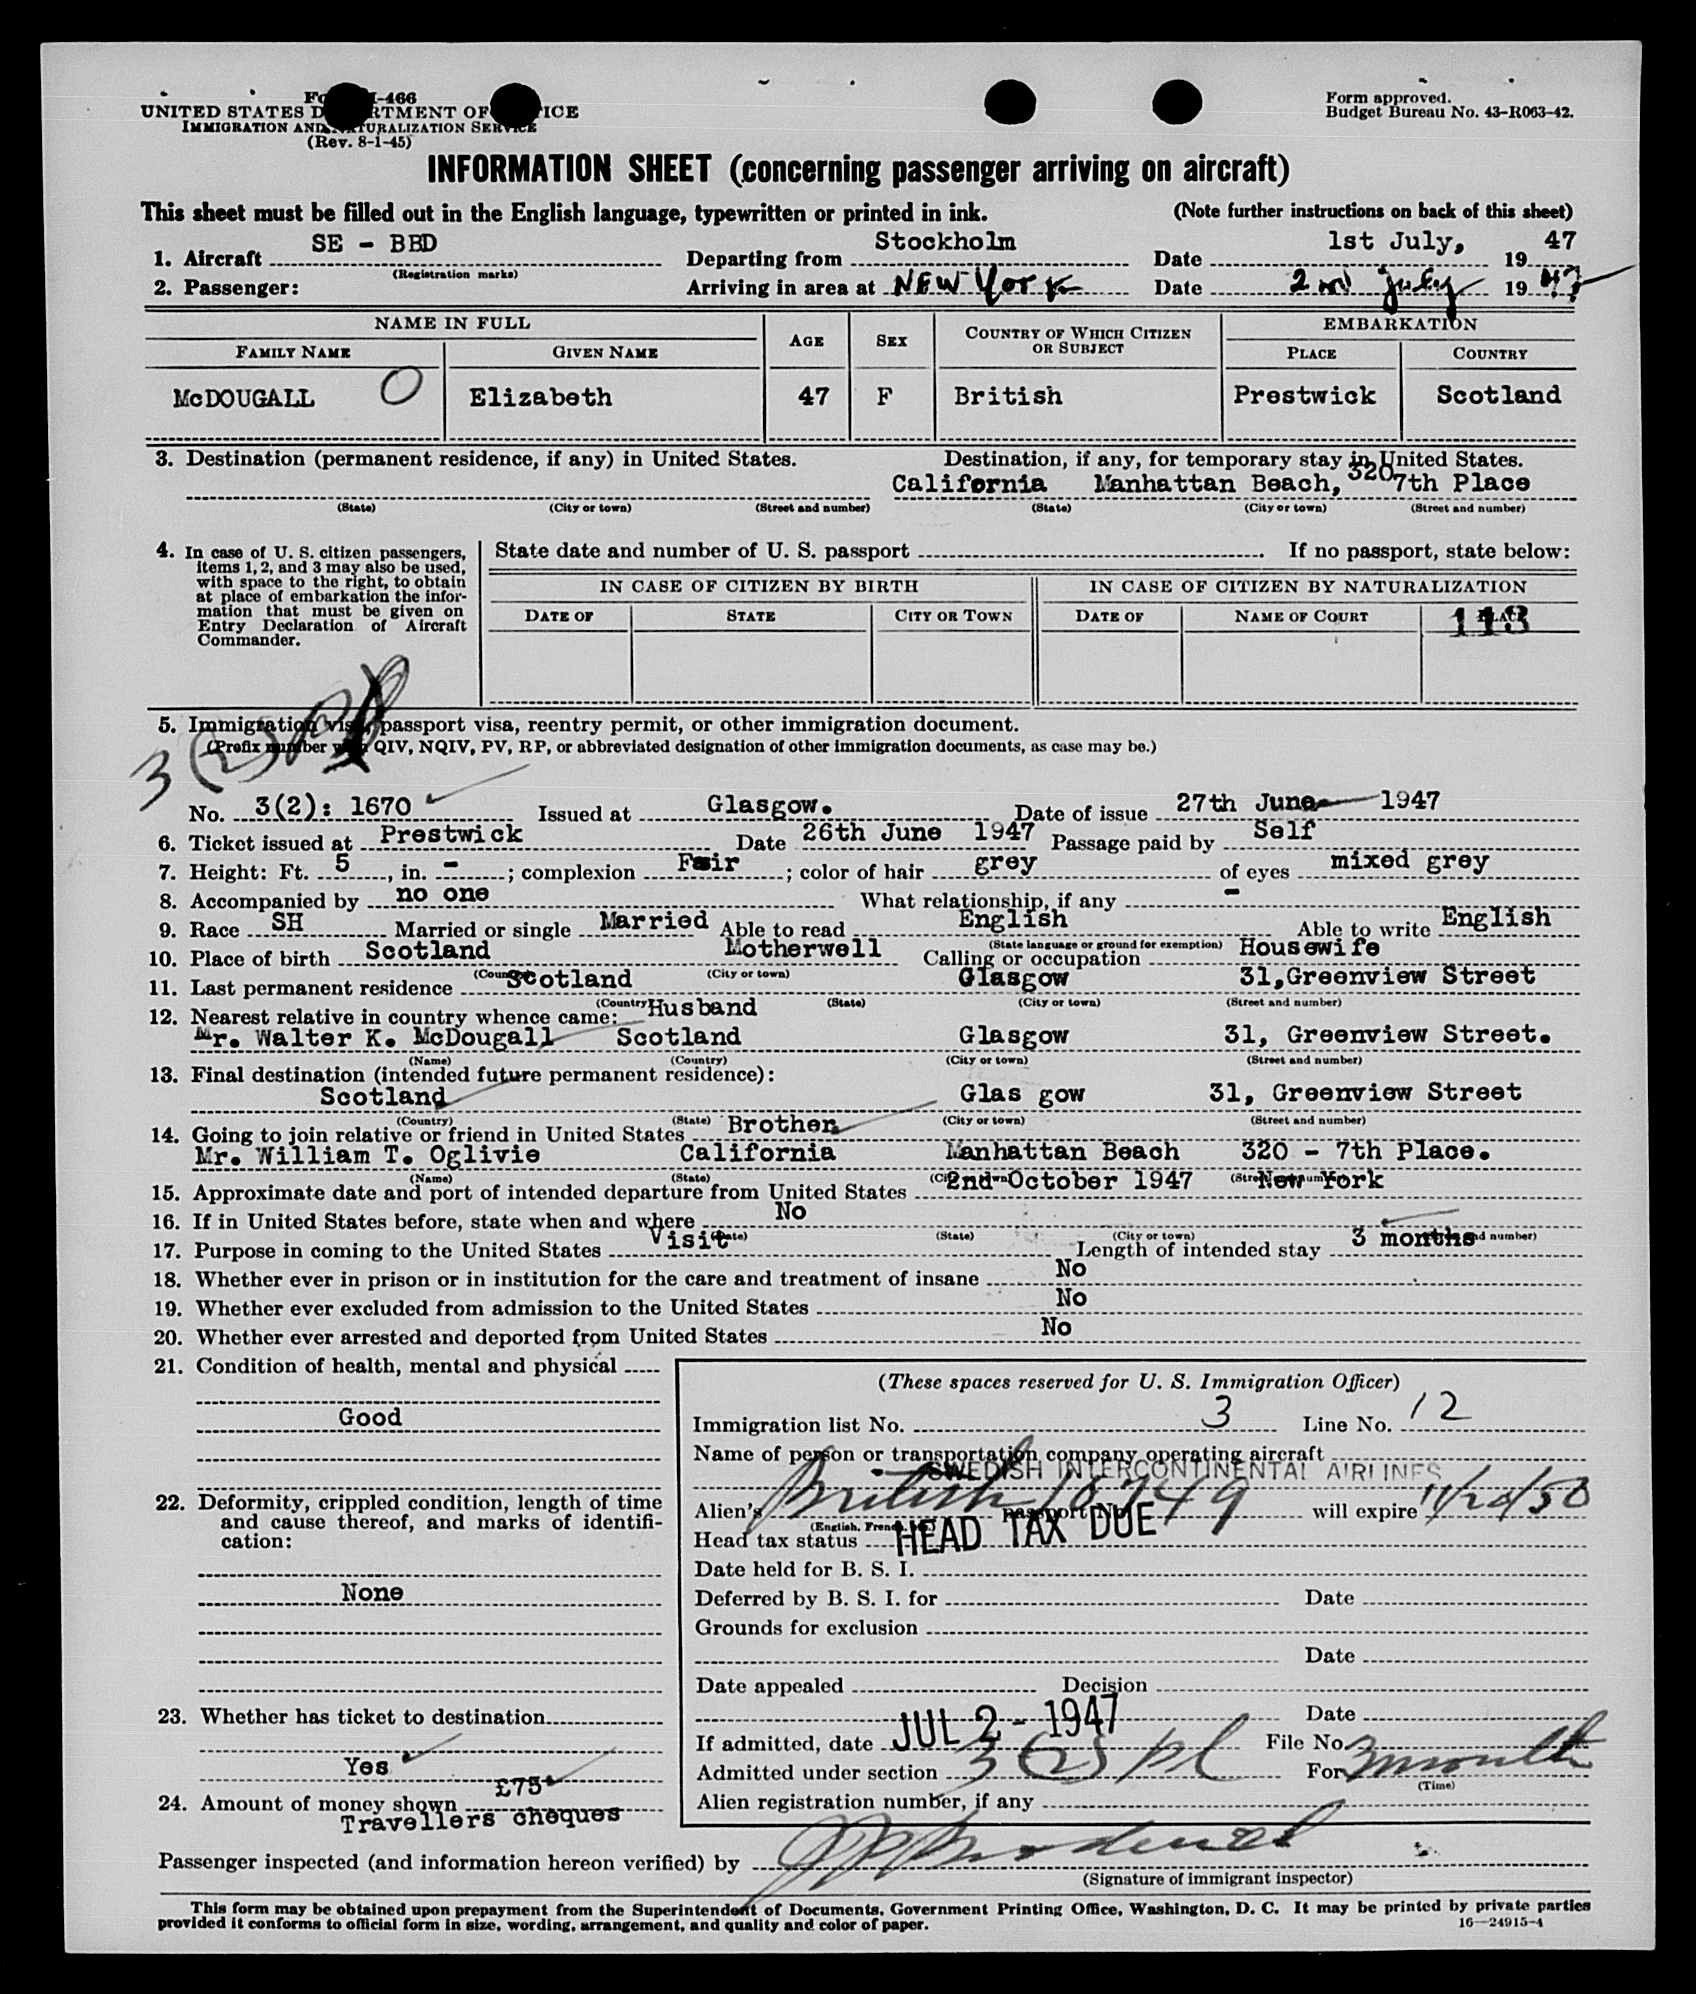 Form I-466
UNITED STATES DEPARTMENT OF JUSTICE
IMMIGRATION AND NATURALIZATION SERVICE
(Rev. 8-1-45)
Form approved.
Budget Bureau No. 43-R063-42.
INFORMATION SHEET (concerning passenger arriving on aircraft)
This sheet must be filled out in the English language, typewritten or printed in ink. (Note further instructions on back of this sheet)
1. Aircraft SE - BBD Departing from Stockholm Date 1st July, 1947
(Registration marks)
2. Passenger: Arriving in area at NEW York Date 2nd July 1947
NAME IN FULL AGE SEX COUNTRY OF WHICH CITIZEN OR SUBJECT EMBARKATION
FAMILY NAME GIVEN NAME PLACE COUNTRY
McDOUGALL O Elizabeth 47 F British Prestwick Scotland
3. Destination (permanent residence, if any) in United States. Destination, if any, for temporary stay in United States.
California Manhattan Beach, 320 7th Place
(State) (City or town) (Street and number) (State) (City or town) (Street and number)
4. In case of U. S. citizen passengers, items 1, 2, and 3 may also be used, with space to the right, to obtain at place of embarkation the information that must be given on Entry Declaration of Aircraft Commander.
State date and number of U. S. passport . If no passport, state below:
IN CASE OF CITIZEN BY BIRTH IN CASE OF CITIZEN BY NATURALIZATION
DATE OF STATE CITY OR TOWN DATE OF NAME OF COURT PLACE
113
5. Immigration visa, passport visa, reentry permit, or other immigration document.
(Prefix number with QIV, NQIV, PV, RP, or abbreviated designation of other immigration documents, as case may be.)
3(2)
No. 3(2): 1670 Issued at Glasgow. Date of issue 27th June 1947
6. Ticket issued at Prestwick Date 26th June 1947 Passage paid by Self
7. Height: Ft. 5, in. -; complexion Fair; color of hair grey of eyes mixed grey
8. Accompanied by no one What relationship, if any -
9. Race SH Married or single Married Able to read English Able to write English
(State language or ground for exemption)
10. Place of birth Scotland Motherwell Calling or occupation Housewife
(Country) (City or town)
11. Last permanent residence Scotland Glasgow 31,Greenview Street
(Country) (State) (City or town) (Street and number)
12. Nearest relative in country whence came: Husband
Mr. Walter K. McDougall Scotland Glasgow 31, Greenview Street.
(Name) (Country) (City or town) (Street and number)
13. Final destination (intended future permanent residence):
Scotland Glas gow 31, Greenview Street
(Country) (State) (City or town) (Street and number)
14. Going to join relative or friend in United States Brother
Mr. William T. Oglivie California Manhattan Beach 320 - 7th Place.
(Name) (State) (City or town) (Street and number)
15. Approximate date and port of intended departure from United States 2nd October 1947 New York
16. If in United States before, state when and where No
(Date) (State) (City or town) (Street and number)
17. Purpose in coming to the United States Visit Length of intended stay 3 months
18. Whether ever in prison or in institution for the care and treatment of insane No
19. Whether ever excluded from admission to the United States No
20. Whether ever arrested and deported from United States No
21. Condition of health, mental and physical
Good
22. Deformity, crippled condition, length of time and cause thereof, and marks of identification:
None
23. Whether has ticket to destination
Yes
24. Amount of money shown £75
Travellers cheques
(These spaces reserved for U. S. Immigration Officer)
Immigration list No. 3 Line No. 12
Name of person or transportation company operating aircraft
SWEDISH INTERCONTINENTAL AIRLINES
Alien's British passport No. 10749 will expire 11/20/50
(English, French, etc.)
Head tax status HEAD TAX DUE
Date held for B. S. I.
Deferred by B. S. I. for Date
Grounds for exclusion
Date
Date appealed Decision
Date
If admitted, date JUL 2 - 1947 File No.
Admitted under section 3(2) For 3 months
(Time)
Alien registration number, if any
Passenger inspected (and information hereon verified) by
(Signature of immigrant inspector)
This form may be obtained upon prepayment from the Superintendent of Documents, Government Printing Office, Washington, D. C. It may be printed by private parties
provided it conforms to official form in size, wording, arrangement, and quality and color of paper. 16—24915-4